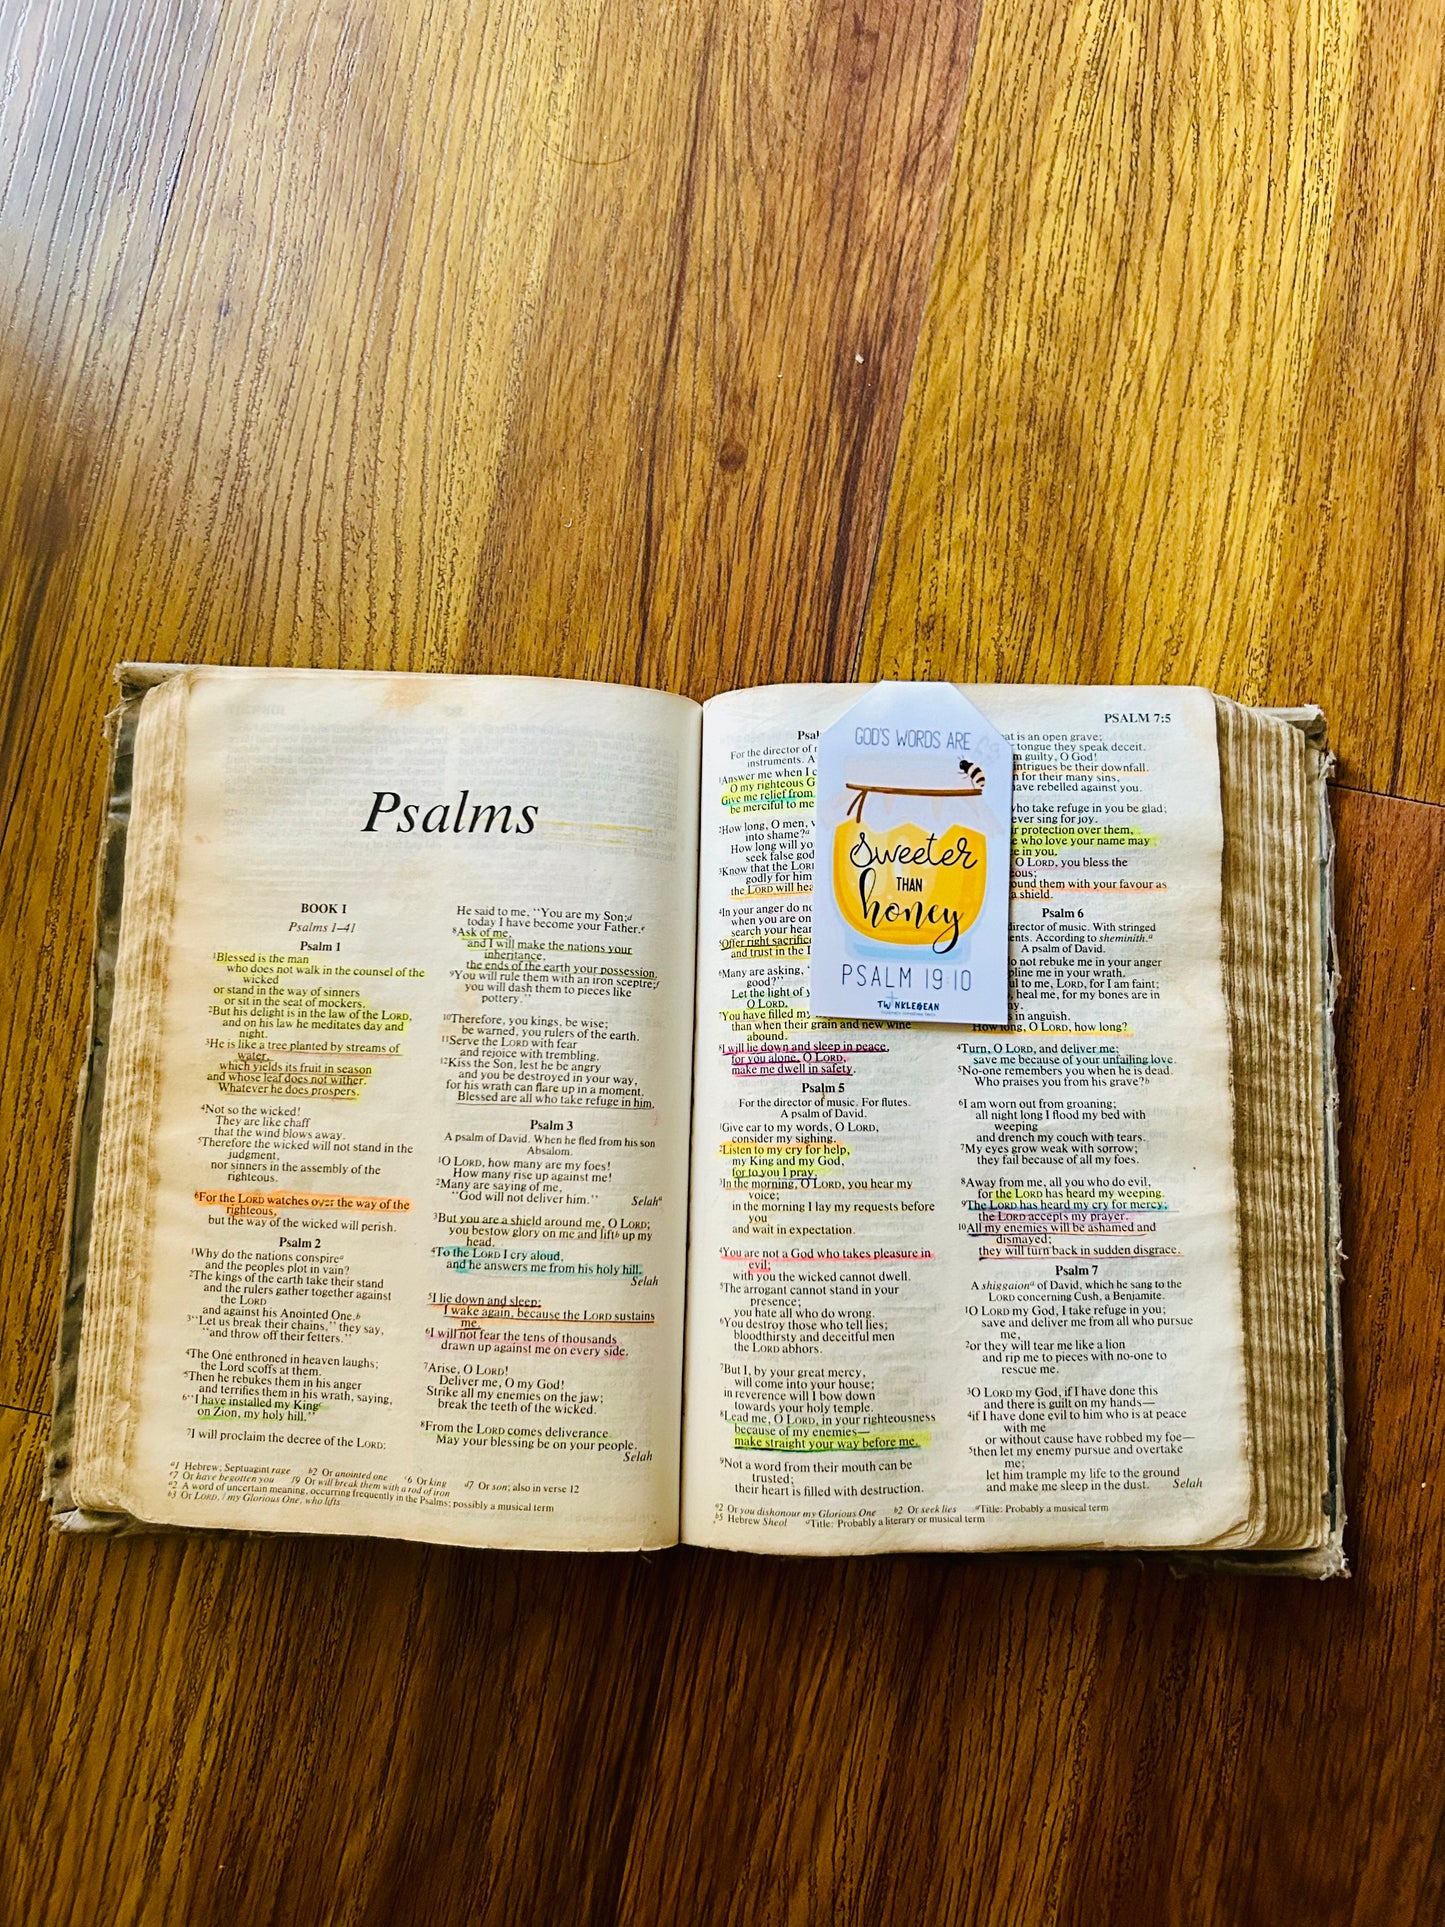 Psalms
BOOK I
Psalms 1–41
Psalm 1
1Blessed is the man
who does not walk in the counsel of the
wicked
or stand in the way of sinners
or sit in the seat of mockers.
2But his delight is in the law of the LORD,
and on his law he meditates day and
night.
3He is like a tree planted by streams of
water,
which yields its fruit in season
and whose leaf does not wither.
Whatever he does prospers.
4Not so the wicked!
They are like chaff
that the wind blows away.
5Therefore the wicked will not stand in the
judgment,
nor sinners in the assembly of the
righteous.
6For the LORD watches over the way of the
righteous,
but the way of the wicked will perish.
Psalm 2
1Why do the nations conspirea
and the peoples plot in vain?
2The kings of the earth take their stand
and the rulers gather together against
the LORD
and against his Anointed One.b
3“Let us break their chains,” they say,
“and throw off their fetters.”
4The One enthroned in heaven laughs;
the Lord scoffs at them.
5Then he rebukes them in his anger
and terrifies them in his wrath, saying,
6“I have installed my Kingc
on Zion, my holy hill.”
7I will proclaim the decree of the LORD:
He said to me, “You are my Son;d
today I have become your Father.e
8Ask of me,
and I will make the nations your
inheritance,
the ends of the earth your possession.
9You will rule them with an iron sceptre;f
you will dash them to pieces like
pottery.”
10Therefore, you kings, be wise;
be warned, you rulers of the earth.
11Serve the LORD with fear
and rejoice with trembling.
12Kiss the Son, lest he be angry
and you be destroyed in your way,
for his wrath can flare up in a moment.
Blessed are all who take refuge in him.
Psalm 3
A psalm of David. When he fled from his son
Absalom.
1O LORD, how many are my foes!
How many rise up against me!
2Many are saying of me,
“God will not deliver him.” Selaha
3But you are a shield around me, O LORD;
you bestow glory on me and liftb up my
head.
4To the LORD I cry aloud,
and he answers me from his holy hill.
Selah
5I lie down and sleep;
I wake again, because the LORD sustains
me.
6I will not fear the tens of thousands
drawn up against me on every side.
7Arise, O LORD!
Deliver me, O my God!
Strike all my enemies on the jaw;
break the teeth of the wicked.
8From the LORD comes deliverance.
May your blessing be on your people.
Selah
a1 Hebrew; Septuagint rage b2 Or anointed one c6 Or king d7 Or son; also in verse 12
e7 Or have begotten you f9 Or will break them with a rod of iron
a2 A word of uncertain meaning, occurring frequently in the Psalms; possibly a musical term
b3 Or LORD, / my Glorious One, who lifts
PSALM 7:5
For the director of
instruments. A
1Answer me when I c
O my righteous G
Give me relief from
be merciful to me
2How long, O men, w
into shame?a
How long will yo
seek false god
3Know that the LOR
godly for him
the LORD will hea
4In your anger do no
when you are on
search your hear
5Offer right sacrific
and trust in the L
6Many are asking, “
good?”
Let the light of y
O LORD.
7You have filled my
than when their grain and new wine
abound.
8I will lie down and sleep in peace,
for you alone, O LORD,
make me dwell in safety.
Psalm 5
For the director of music. For flutes.
A psalm of David.
1Give ear to my words, O LORD,
consider my sighing.
2Listen to my cry for help,
my King and my God,
for to you I pray.
3In the morning, O LORD, you hear my
voice;
in the morning I lay my requests before
you
and wait in expectation.
4You are not a God who takes pleasure in
evil;
with you the wicked cannot dwell.
5The arrogant cannot stand in your
presence;
you hate all who do wrong.
6You destroy those who tell lies;
bloodthirsty and deceitful men
the LORD abhors.
7But I, by your great mercy,
will come into your house;
in reverence will I bow down
towards your holy temple.
8Lead me, O LORD, in your righteousness
because of my enemies—
make straight your way before me.
9Not a word from their mouth can be
trusted;
their heart is filled with destruction.
GOD'S WORDS ARE
Sweeter
THAN
honey
PSALM 19:10
TWINKLEBEAN
at is an open grave;
tongue they speak deceit.
guilty, O God!
intrigues be their downfall.
for their many sins,
have rebelled against you.
who take refuge in you be glad;
ever sing for joy.
protection over them,
who love your name may
in you.
O LORD, you bless the
ous;
ound them with your favour as
a shield.
Psalm 6
director of music. With stringed
ents. According to sheminith.a
A psalm of David.
do not rebuke me in your anger
pline me in your wrath.
to me, LORD, for I am faint;
heal me, for my bones are in
ny.
is in anguish.
How long, O LORD, how long?
4Turn, O LORD, and deliver me;
save me because of your unfailing love.
5No-one remembers you when he is dead.
Who praises you from his grave?b
6I am worn out from groaning;
all night long I flood my bed with
weeping
and drench my couch with tears.
7My eyes grow weak with sorrow;
they fail because of all my foes.
8Away from me, all you who do evil,
for the LORD has heard my weeping.
9The LORD has heard my cry for mercy;
the LORD accepts my prayer.
10All my enemies will be ashamed and
dismayed;
they will turn back in sudden disgrace.
Psalm 7
A shiggaiona of David, which he sang to the
LORD concerning Cush, a Benjamite.
1O LORD my God, I take refuge in you;
save and deliver me from all who pursue
me,
2or they will tear me like a lion
and rip me to pieces with no-one to
rescue me.
3O LORD my God, if I have done this
and there is guilt on my hands—
4if I have done evil to him who is at peace
with me
or without cause have robbed my foe—
5then let my enemy pursue and overtake
me;
let him trample my life to the ground
and make me sleep in the dust. Selah
a2 Or you dishonour my Glorious One b2 Or seek lies aTitle: Probably a musical term
b5 Hebrew Sheol aTitle: Probably a literary or musical term